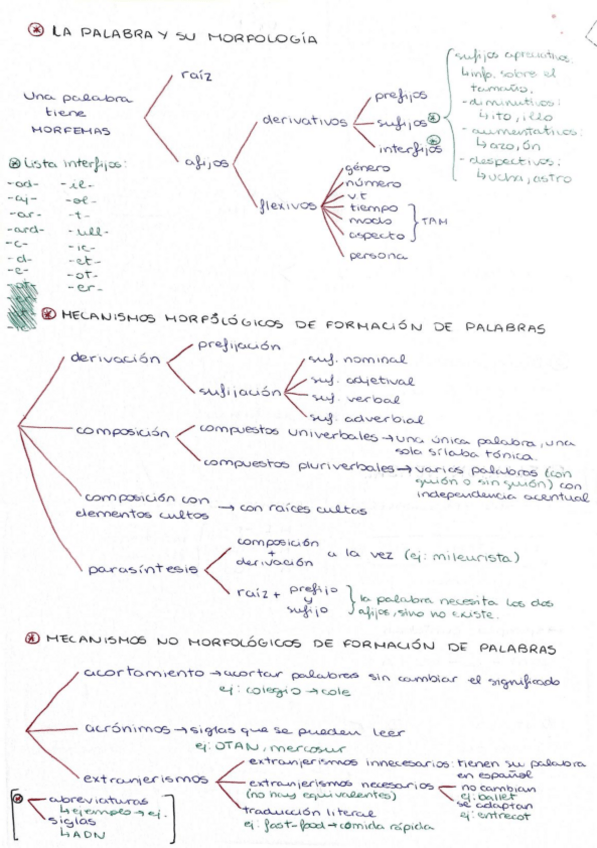 LA PALABRA Y SU MORFOLOGÍA
Una palabra
tiene
MORFEMAS
raíz
afijos
derivativos
prefijos
sufijos
interfijos
flexivos
género
número
VT
tiempo
modo
aspecto
TAM
persona
sufijos apreciativos
↳info. sobre el
tamaño.
- diminutivos:
↳ito, illo
- aumentativos:
↳azo, ón
- despectivos:
↳ucha, astro
Lista interfijos:
-ad- -il-
-cy- -ol-
-ar- -t-
-ard- -ull-
-c- -ic-
-d- -et-
-e- -ot-
-er-
MECANISMOS MORFOLÓGICOS DE FORMACIÓN DE PALABRAS
derivación
prefijación
sufijación
suf. nominal
suf. adjetival
suf. verbal
suf. adverbial
composición
compuestos univerbales → una única palabra, una
sola sílaba tónica.
compuestos pluriverbales → varias palabras (con
guión o sin guión) con
independencia acentual
composición con
elementos cultos → con raíces cultas
parasíntesis
composición
+
derivación
a la vez (ej: mileurista)
raíz + prefijo
y
sufijo
la palabra necesita los dos
afijos, sino no existe.
MECANISMOS NO MORFOLÓGICOS DE FORMACIÓN DE PALABRAS
acortamiento → acortar palabras sin cambiar el significado
ej: colegio → cole
acrónimos → siglas que se pueden leer
ej: OTAN, mercosur
extranjerismos
extranjerismos innecesarios: tienen su palabra
en español
extranjerismos necesarios
(no hay equivalentes)
no cambian
ej: ballet
se adaptan
ej: entrecot
traducción literal
ej: fast-food → comida rápida
abreviaturas
↳ejemplo → ej.
siglas
↳ADN